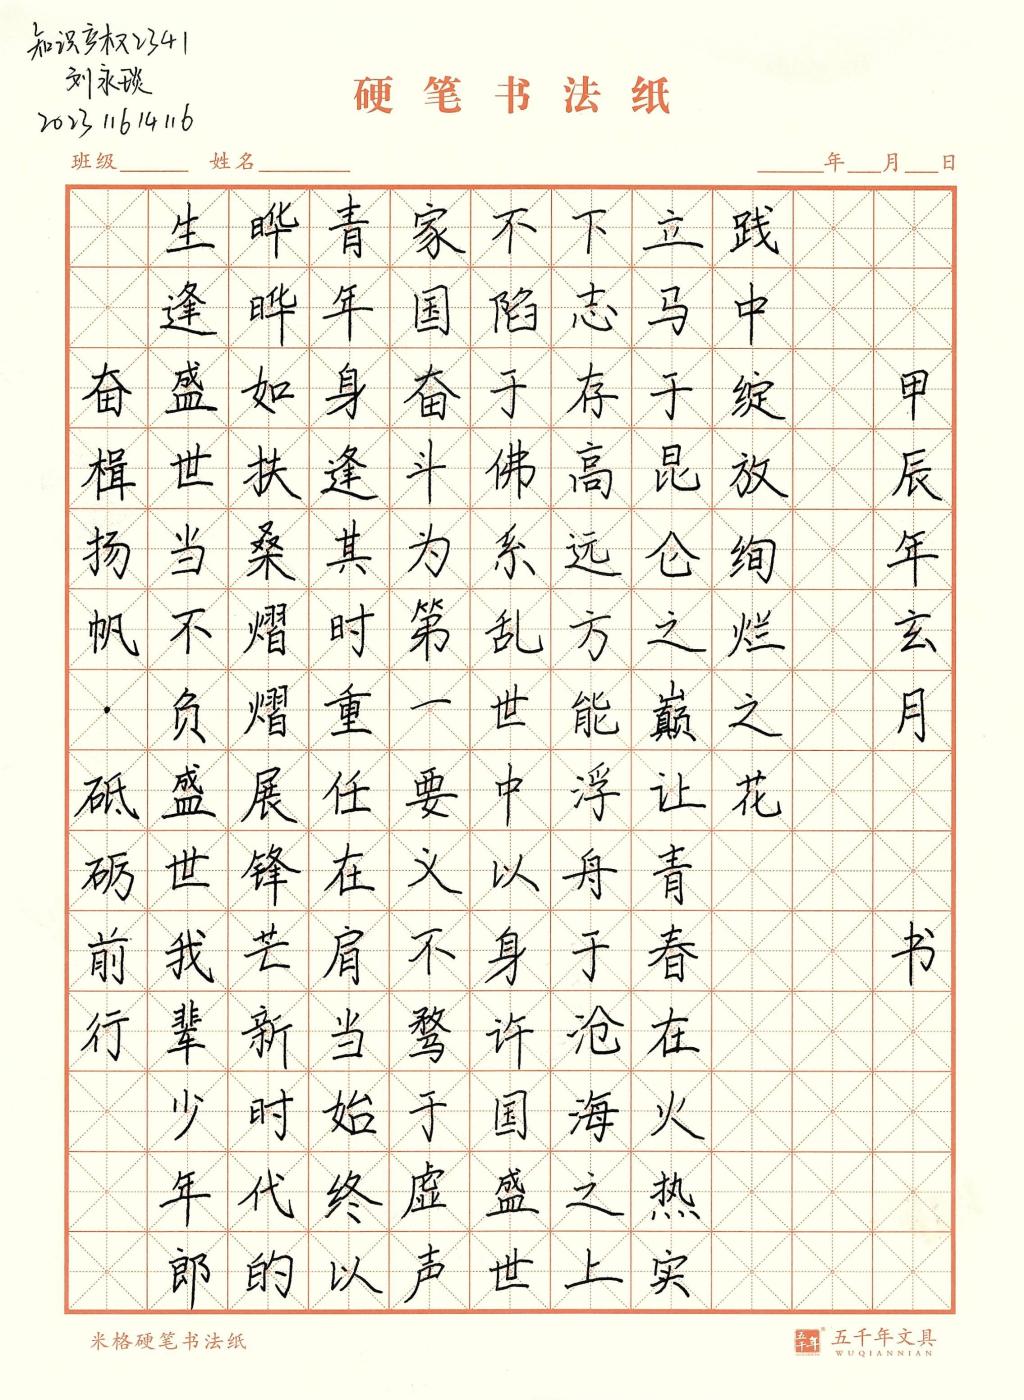 知识产权2341
刘永琰
202311614116
硬笔书法纸
班级 姓名 年 月 日
奋楫扬帆·砥砺前行
生逢盛世当不负盛世我辈少年郎
晔晔如扶桑熠熠展锋芒新时代的
青年身逢其时重任在肩当始终以
家国奋斗为第一要义不骛于虚声
不陷于佛系乱世中以身许国盛世
下志存高远方能浮舟于沧海之上
立马于昆仑之巅让青春在火热实
践中绽放绚烂之花
甲辰年玄月 书
米格硬笔书法纸
五千年
五千年文具
WUQIANNIAN